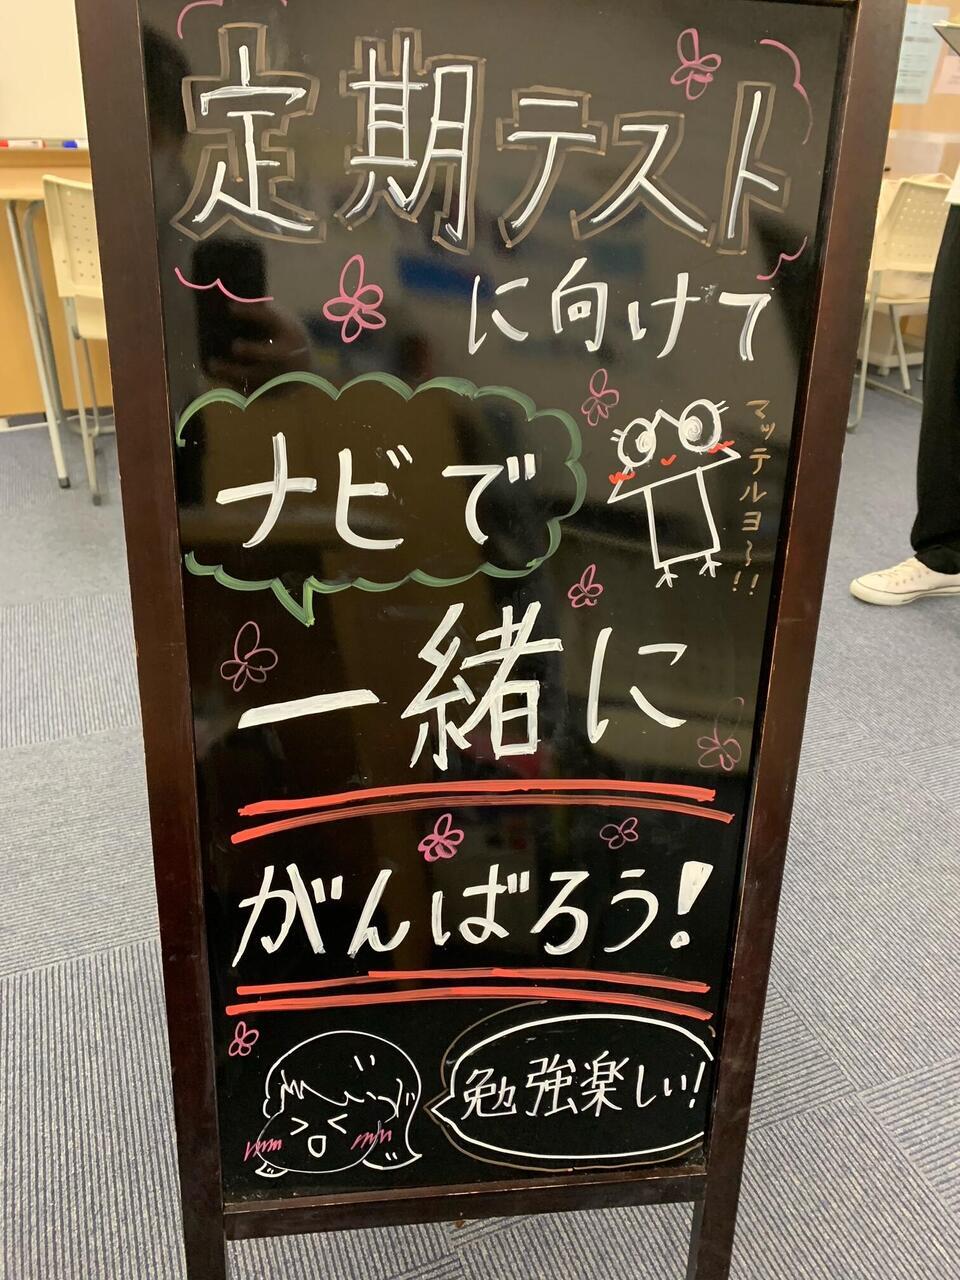 定期テスト
に向けて
ナビで
マッテルヨ〜!!
一緒に
がんばろう!
勉強楽しい!